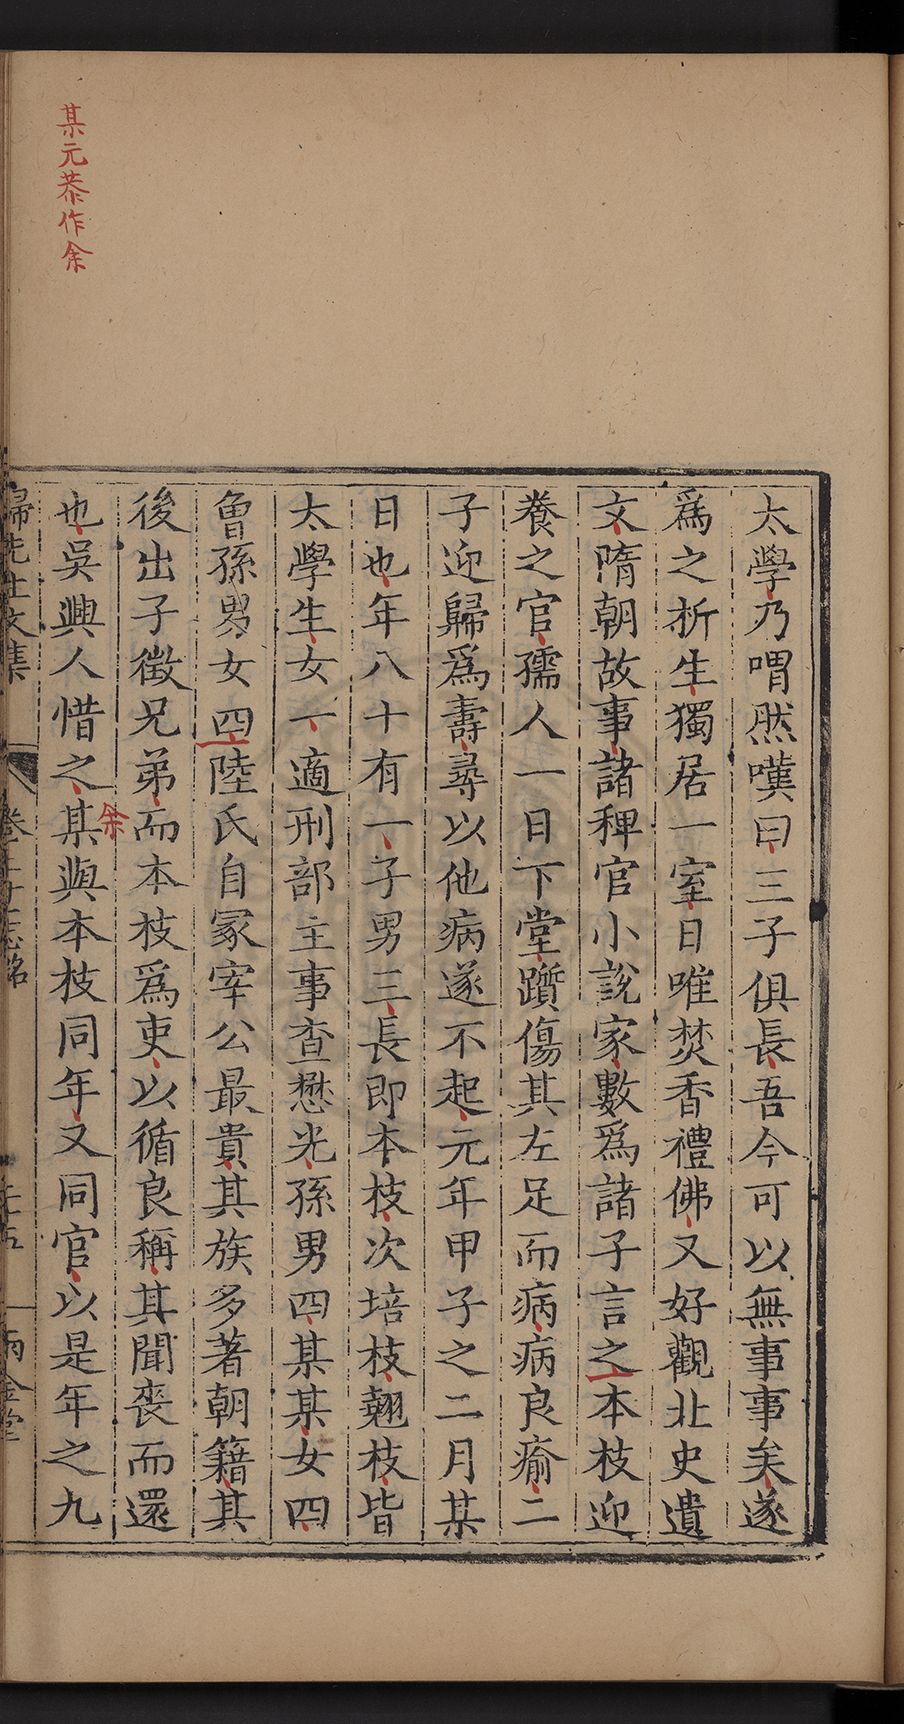 太學乃喟然嘆曰三子俱長吾今可以無事事矣遂
爲之析生獨居一室日唯焚香禮佛又好觀北史遺
文隋朝故事諸稗官小說家數爲諸子言之本枝迎
養之官孺人一日下堂躓傷其左足而病病良瘉二
子迎歸爲壽尋以他病遂不起元年甲子之二月某
日也年八十有一子男三長卽本枝次培枝翹枝皆
太學生女一適刑部主事查懋光孫男四某某女四
曾孫男女四陸氏自冡宰公最貴其族多著朝籍其
後出子徵兄弟而本枝爲吏以循良稱其聞喪而還
也吳興人惜之某與本枝同年又同官以是年之九
余
某元恭作余
歸先生文集